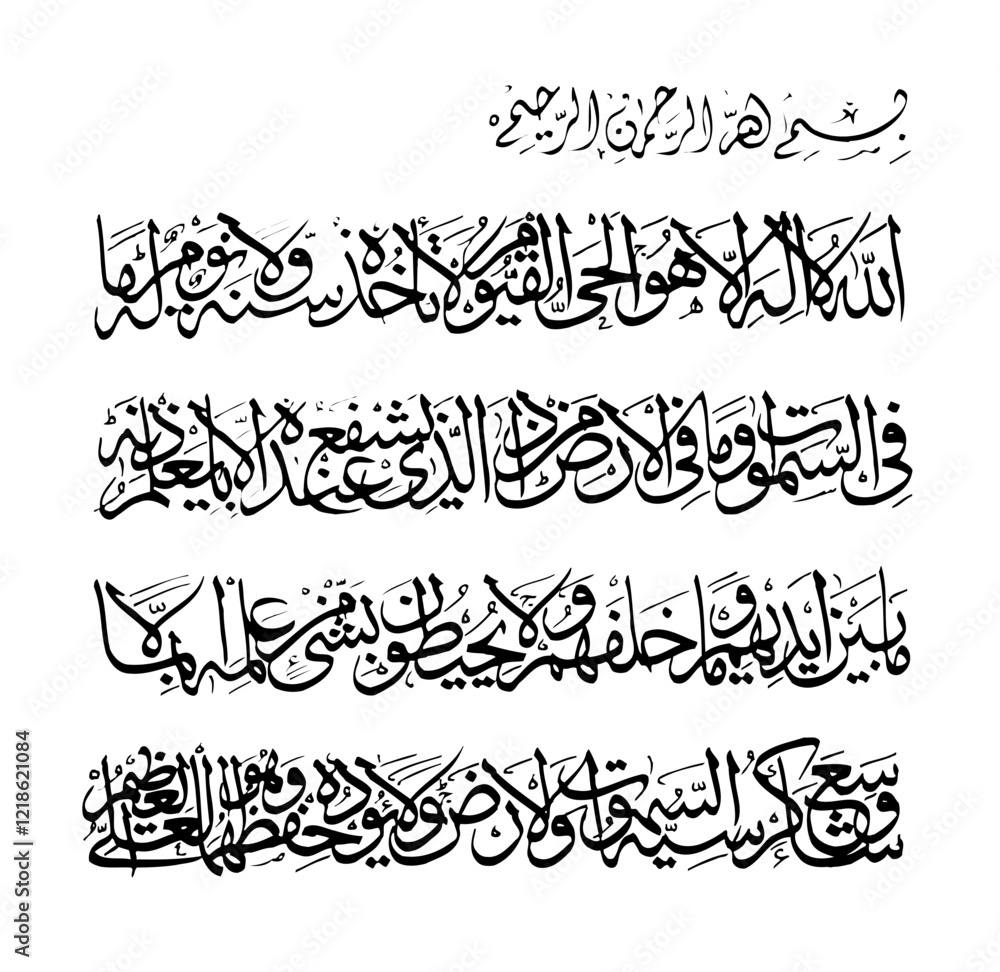 بسم الله الرحمن الرحيم
الله لا اله الا هو الحي القيوم لا تأخذه سنة ولا نوم له ما
في السموات وما في الارض من ذا الذي يشفع عنده الا باذنه يعلم
ما بين ايديهم وما خلفهم ولا يحيطون بشئ من علمه الا بما
شاء وسع كرسيه السموات والارض ولا يؤده حفظهما وهو العلي العظيم
Adobe Stock | #1218621084